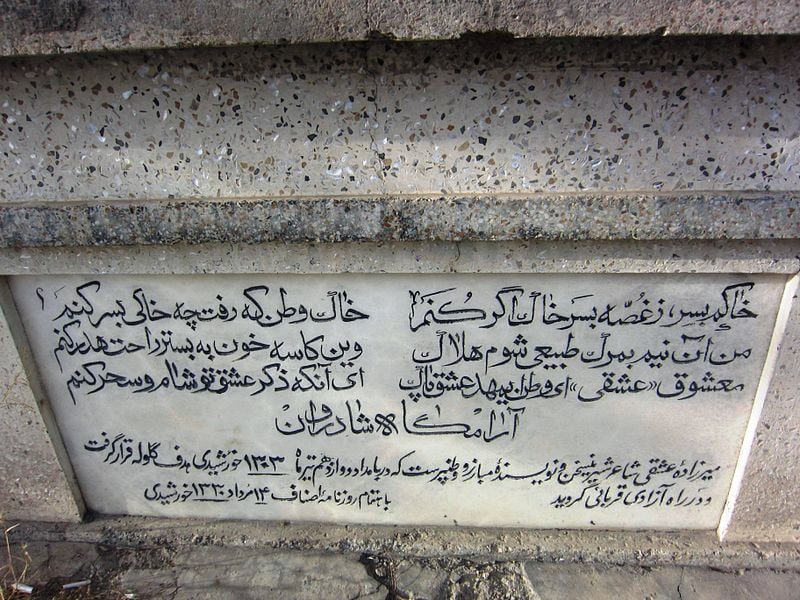 خاکم بسر، ز غصّه بسر خاک اگر کُنم خاک وطن که رفت چه خاکی بسر کنم؟
من آن نیم بمرگ طبیعی شوم هلاک وین کاسه خون به بستر راحت هدر کنم
معشوق «عشقی» ای وطن ای مهد عشق پاک ای آنکه ذکر عشق تو شام و سحر کنم
آرامگاه شادروان
میرزاده عشقی شاعر شیرینسخن و نویسندهٔ مبارز و وطنپرست که در بامداد دوازدهم تیر ماه ۱۳۰۳ خورشیدی هدف گلوله قرار گرفت
و در راه آزادی قربانی گردید باهتمام روزنامه اصناف ۱۴ مرداد ۱۳۳۰ خورشیدی